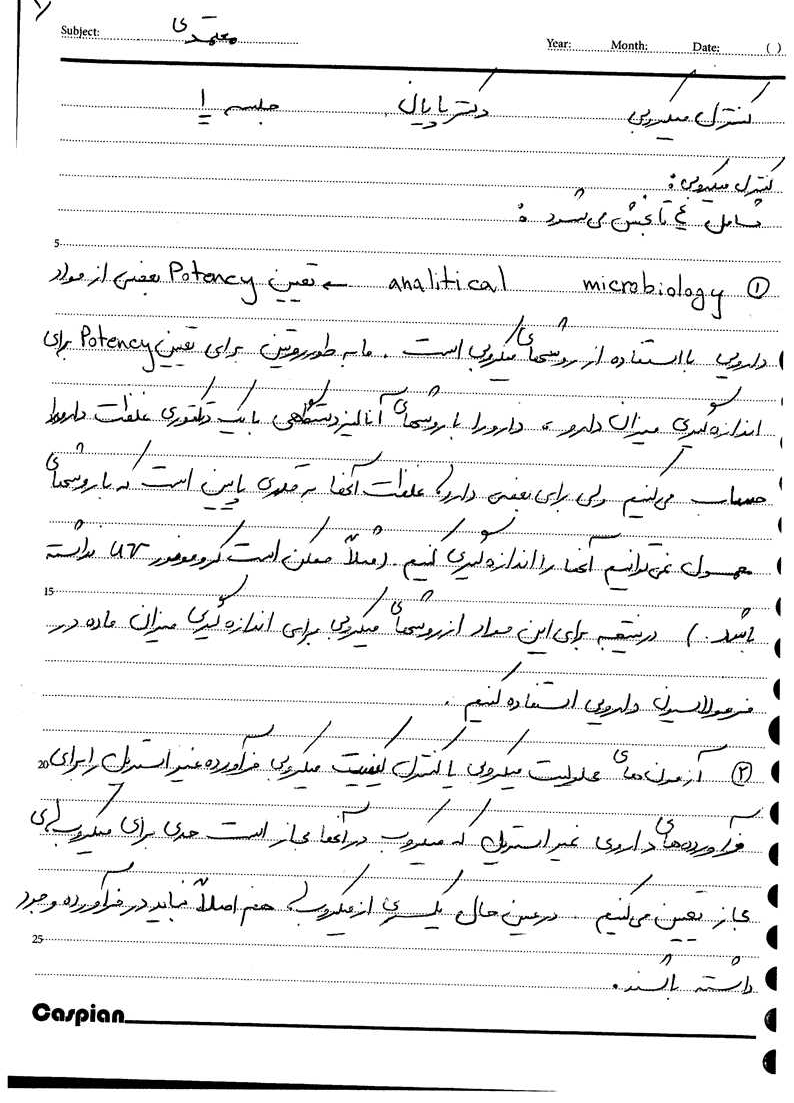 Subject: معتمدی
Year: Month: Date: ( )
کنترل میکروبی دکتر پایان جلسه 1
کنترل میکروبی:
شامل 4 تا بخش می شود:
5
① analitical microbiology ← تعیین Potency بعضی از مواد
دارویی با استفاده از روشهای میکروبی است. ما به طور روتین برای تعیین Potency برای
اندازه گیری میزان دارو، دارو را با روشهای آنالیز دستگاهی با یک دتکتوری غلظت دارو را
حساب می کنیم ولی برای بعضی داروها غلظت آنها به قدری پایین است که با روشهای
معمول نمی توانیم آنها را اندازه گیری کنیم. (مثلاً ممکن است کروموفور UV نداشته
15
باشد.) در نتیجه برای این مواد از روشهای میکروبی برای اندازه گیری میزان ماده در
فرمولاسیون دارویی استفاده کنیم.
② آزمون های محدودیت میکروبی یا کنترل کیفیت میکروبی فرآورده غیر استریل را برای
20
فرآورده های داروی غیر استریل که میکروب در آنها مجاز است حدی برای میکروب های
مجاز تعیین می کنیم. در عین حال یکسری از میکروب ها هم اصلاً نباید در فرآورده وجود
25
داشته باشند.
Caspian